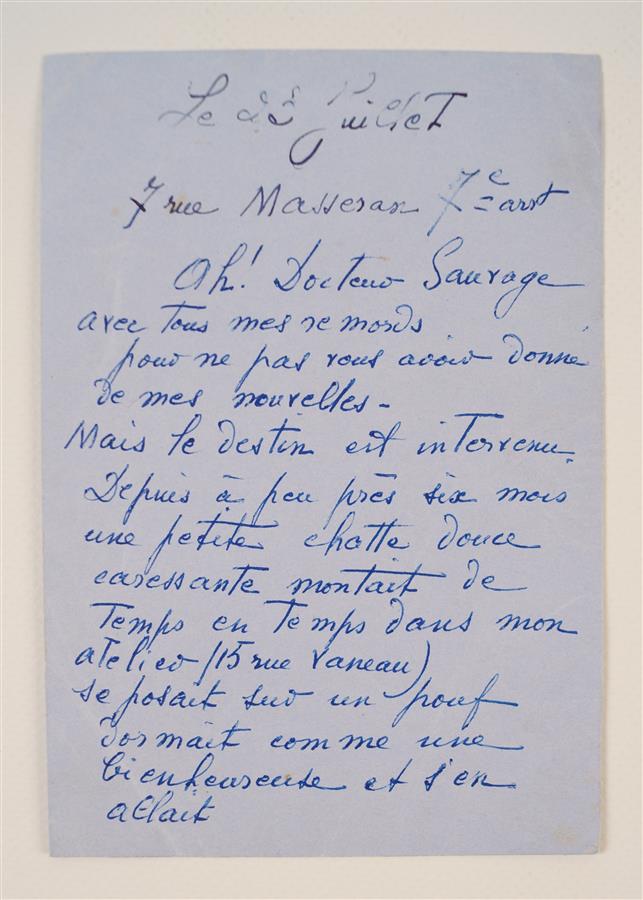 Le 22 Juillet
7 rue Masseran 7e arrt
Oh! Docteur Sauvage
avec tous mes remords
pour ne pas vous avoir donné
de mes nouvelles -
Mais le destin est intervenu.
Depuis à peu près six mois
une petite chatte douce
caressante montait de
temps en temps dans mon
atelier (15 rue Vaneau)
se posait sur un pouf
dormait comme une
bienheureuse et s'en
allait